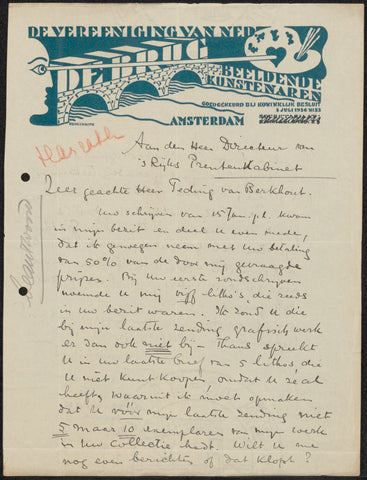 DE VEREENIGING VAN NED.
DE BRUG
BEELDENDE
KUNSTENAREN
GOEDGEKEURD BIJ KONINKLIJK BESLUIT
3 JULI 1934 N! 33
AMSTERDAM
Aan den Heer Directeur van
's Rijks Prentenkabinet
Zeer geachte Heer Teding van Berkhout.
Uw schrijven van 15 Jan. p.l. kwam
in mijn bezit en deel U even mede,
dat ik genoegen neem met Uw betaling
van 50% van de door mij gevraagde
prijzen. Bij Uw eerste rondschrijven
noemde U mij vijf litho's, die reeds
in Uw bezit waren. Ik zond U die
bij mijn laatste zending grafisch werk
er dan ook niet bij – Thans spreekt
U in Uw laatste brief van 5 litho's, die
U niet kunt koopen, omdat U ze al
heeft, waaruit ik moet opmaken
dat U vóór mijn laatste zending niet
5 maar 10 exemplaren van mijn werk
in Uw collectie hadt. Wilt U me
nog even berichten of dat klopt?
beantwoord